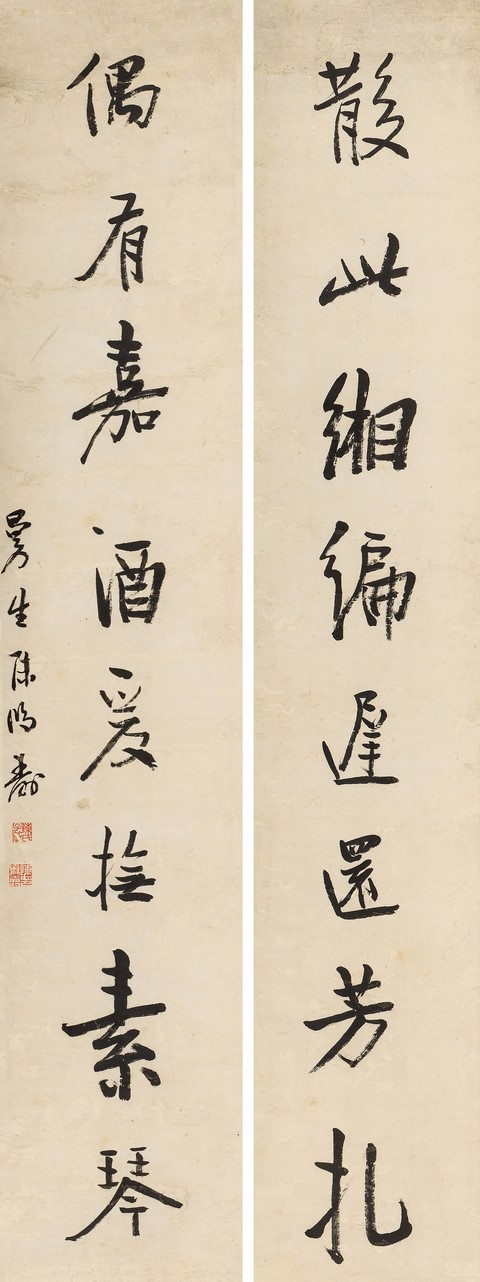 散此緗編遲還芳札
偶有嘉酒爰撫素琴
曼生陳鴻壽